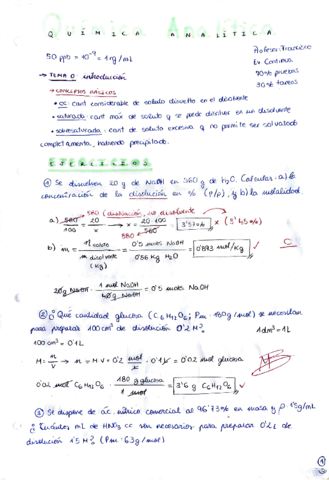 QUÍMICA ANALÍTICA
50 ppb = 10⁻⁹ = 1 ng/mL
Profesor: Francisco
Ev. Continua
70% pruebas
30% tareas
→ TEMA 0: introducción
→ CONCEPTOS BÁSICOS
• CC: cant considerable de soluto disuelto en el disolvente
• saturada: cant max de soluto q se puede disolver en un disolvente
• sobresaturada: cant de soluto excesiva q no permite ser solvatado
completamente, habiendo precipitado.
EJERCICIOS
① Se disuelven 20 g de NaOH en 560 g de H₂O. Calcular: a) la
concentración de la disolución en % (p/p), y b) la molalidad.
580 (disolución, no disolvente)
a) 580/100 = 20/x → x = 20·100/560 = 3'57% (3'45%)
580
b) m = n soluto/m disolvente (kg) = 0'5 moles NaOH/0'56 kg H₂O = 0'893 mol/kg
C
20g NaOH · 1 mol NaOH/40g NaOH = 0'5 moles NaOH
② ¿Qué cantidad glucosa (C₆H₁₂O₆; Pm = 180g/mol) se necesitan
para preparar 100 cm³ de disolución 0'2 M?
1dm³ = 1L
100 cm³ = 0'1L
M = n/V → n = M·V = 0'2 mol/L · 0'1L = 0'02 mol glucosa
0'02 mol C₆H₁₂O₆ · 180 g glucosa/1 mol = 3'6 g C₆H₁₂O₆
③ Se dispone de ác. nítrico comercial al 96'73% en masa y ρ 1'5g/mL
¿Cuántos mL de HNO₃ cc son necesarios para preparar 0'2L de
disolución 1'5 M? (Pm: 63g/mol)
①